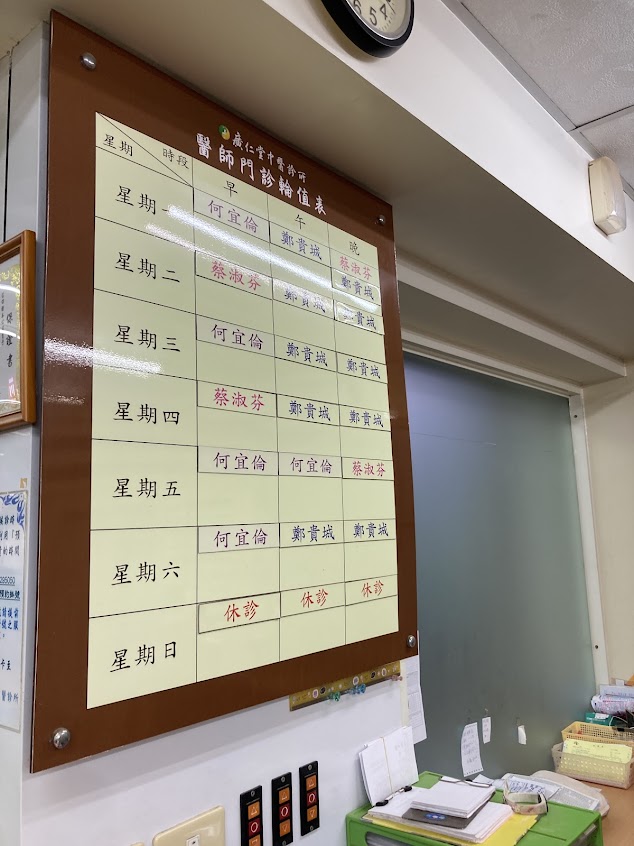 廣仁堂中醫診所
醫師門診輪值表
時段
星期
早 午 晚
星期一 何宜倫 鄭貴城 蔡淑芬
鄭貴城
星期二 蔡淑芬 鄭貴城 鄭貴城
星期三 何宜倫 鄭貴城 鄭貴城
星期四 蔡淑芬 鄭貴城 鄭貴城
星期五 何宜倫 何宜倫 蔡淑芬
星期六 何宜倫 鄭貴城 鄭貴城
星期日 休診 休診 休診
6 5 4
的時間
295050
醫診所